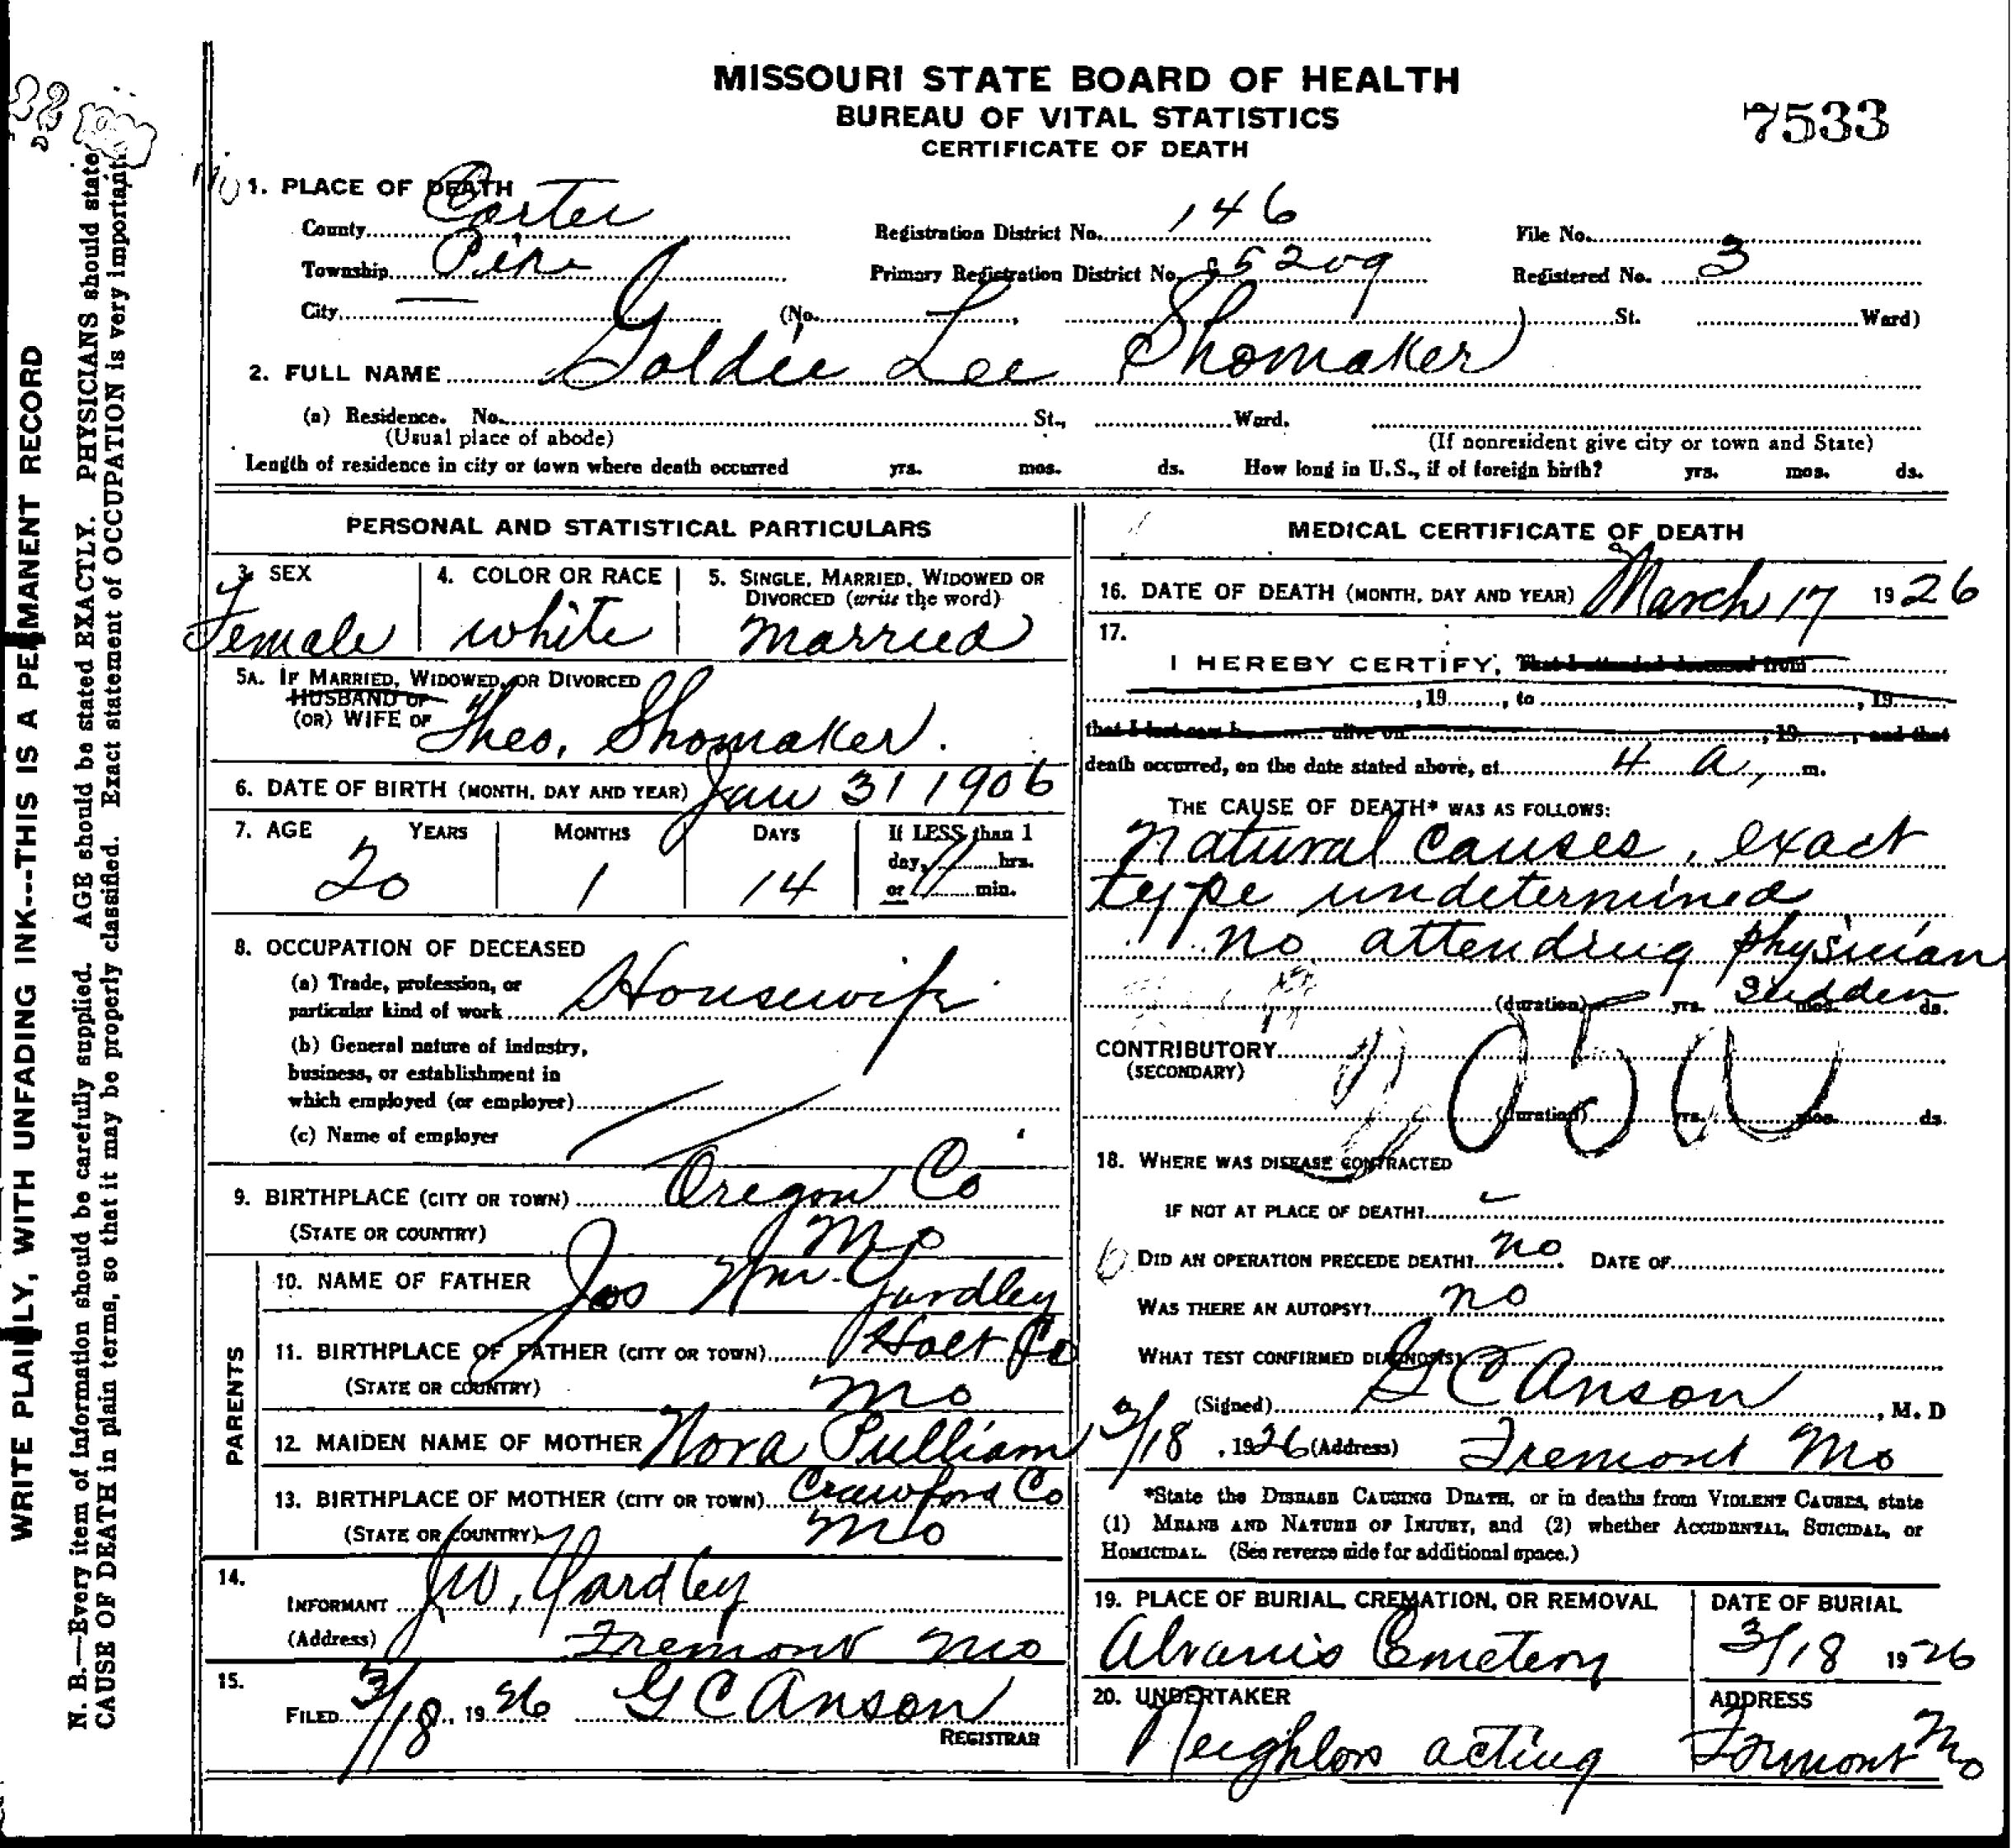 MISSOURI STATE BOARD OF HEALTH
BUREAU OF VITAL STATISTICS
CERTIFICATE OF DEATH
7533
1. PLACE OF DEATH
County Carter Registration District No. 146 File No.
Township Pike Primary Registration District No. 5209 Registered No. 3
City — (No. —, St. Ward)
2. FULL NAME Goldie Lee Shomaker
(a) Residence. No. St., Ward.
(Usual place of abode) (If nonresident give city or town and State)
Length of residence in city or town where death occurred yrs. mos. ds. How long in U.S., if of foreign birth? yrs. mos. ds.
PERSONAL AND STATISTICAL PARTICULARS
3. SEX 4. COLOR OR RACE 5. SINGLE, MARRIED, WIDOWED OR
DIVORCED (write the word)
Female white married
5A. IF MARRIED, WIDOWED, OR DIVORCED
HUSBAND OF
(OR) WIFE OF Theo, Shomaker.
6. DATE OF BIRTH (MONTH, DAY AND YEAR) Jan 31 1906
7. AGE YEARS MONTHS DAYS If LESS than 1
day, hrs.
or min.
20 1 14
8. OCCUPATION OF DECEASED
(a) Trade, profession, or
particular kind of work Housewife
(b) General nature of industry,
business, or establishment in
which employed (or employer)
(c) Name of employer
9. BIRTHPLACE (CITY OR TOWN) Oregon Co
(STATE OR COUNTRY) Mo
PARENTS
10. NAME OF FATHER Jos Wm. Yardley
11. BIRTHPLACE OF FATHER (CITY OR TOWN) Holt Co
(STATE OR COUNTRY) Mo
12. MAIDEN NAME OF MOTHER Nora Pulliam
13. BIRTHPLACE OF MOTHER (CITY OR TOWN) Crawford Co
(STATE OR COUNTRY) Mo
14.
INFORMANT J W, Yardley
(Address) Fremont Mo
15.
FILED 3/18, 1926 G C Anson
REGISTRAR
MEDICAL CERTIFICATE OF DEATH
16. DATE OF DEATH (MONTH, DAY AND YEAR) March 17 1926
17.
I HEREBY CERTIFY, That I attended deceased from
, 19 , to , 19
that I last saw h alive on , 19 , and that
death occurred, on the date stated above, at 4 a, m.
THE CAUSE OF DEATH* WAS AS FOLLOWS:
Natural causes, exact
type undetermined
no attending physician
(duration) yrs. Sudden mos. ds.
CONTRIBUTORY
(SECONDARY)
(duration) yrs. mos. ds.
18. WHERE WAS DISEASE CONTRACTED
IF NOT AT PLACE OF DEATH?
DID AN OPERATION PRECEDE DEATH? no DATE OF
WAS THERE AN AUTOPSY? no
WHAT TEST CONFIRMED DIAGNOSIS?
(Signed) G C Anson, M. D
3/18, 1926 (Address) Fremont Mo
*State the DISEASE CAUSING DEATH, or in deaths from VIOLENT CAUSES, state
(1) MEANS AND NATURE OF INJURY, and (2) whether ACCIDENTAL, SUICIDAL, or
HOMICIDAL. (See reverse side for additional space.)
19. PLACE OF BURIAL, CREMATION, OR REMOVAL DATE OF BURIAL
Cemetery 3/18 1926
20. UNDERTAKER ADDRESS
Neighbors acting Fremont Mo
WRITE PLAINLY, WITH UNFADING INK---THIS IS A PERMANENT RECORD
N. B.—Every item of information should be carefully supplied. AGE should be stated EXACTLY. PHYSICIANS should state
CAUSE OF DEATH in plain terms, so that it may be properly classified. Exact statement of OCCUPATION is very important.